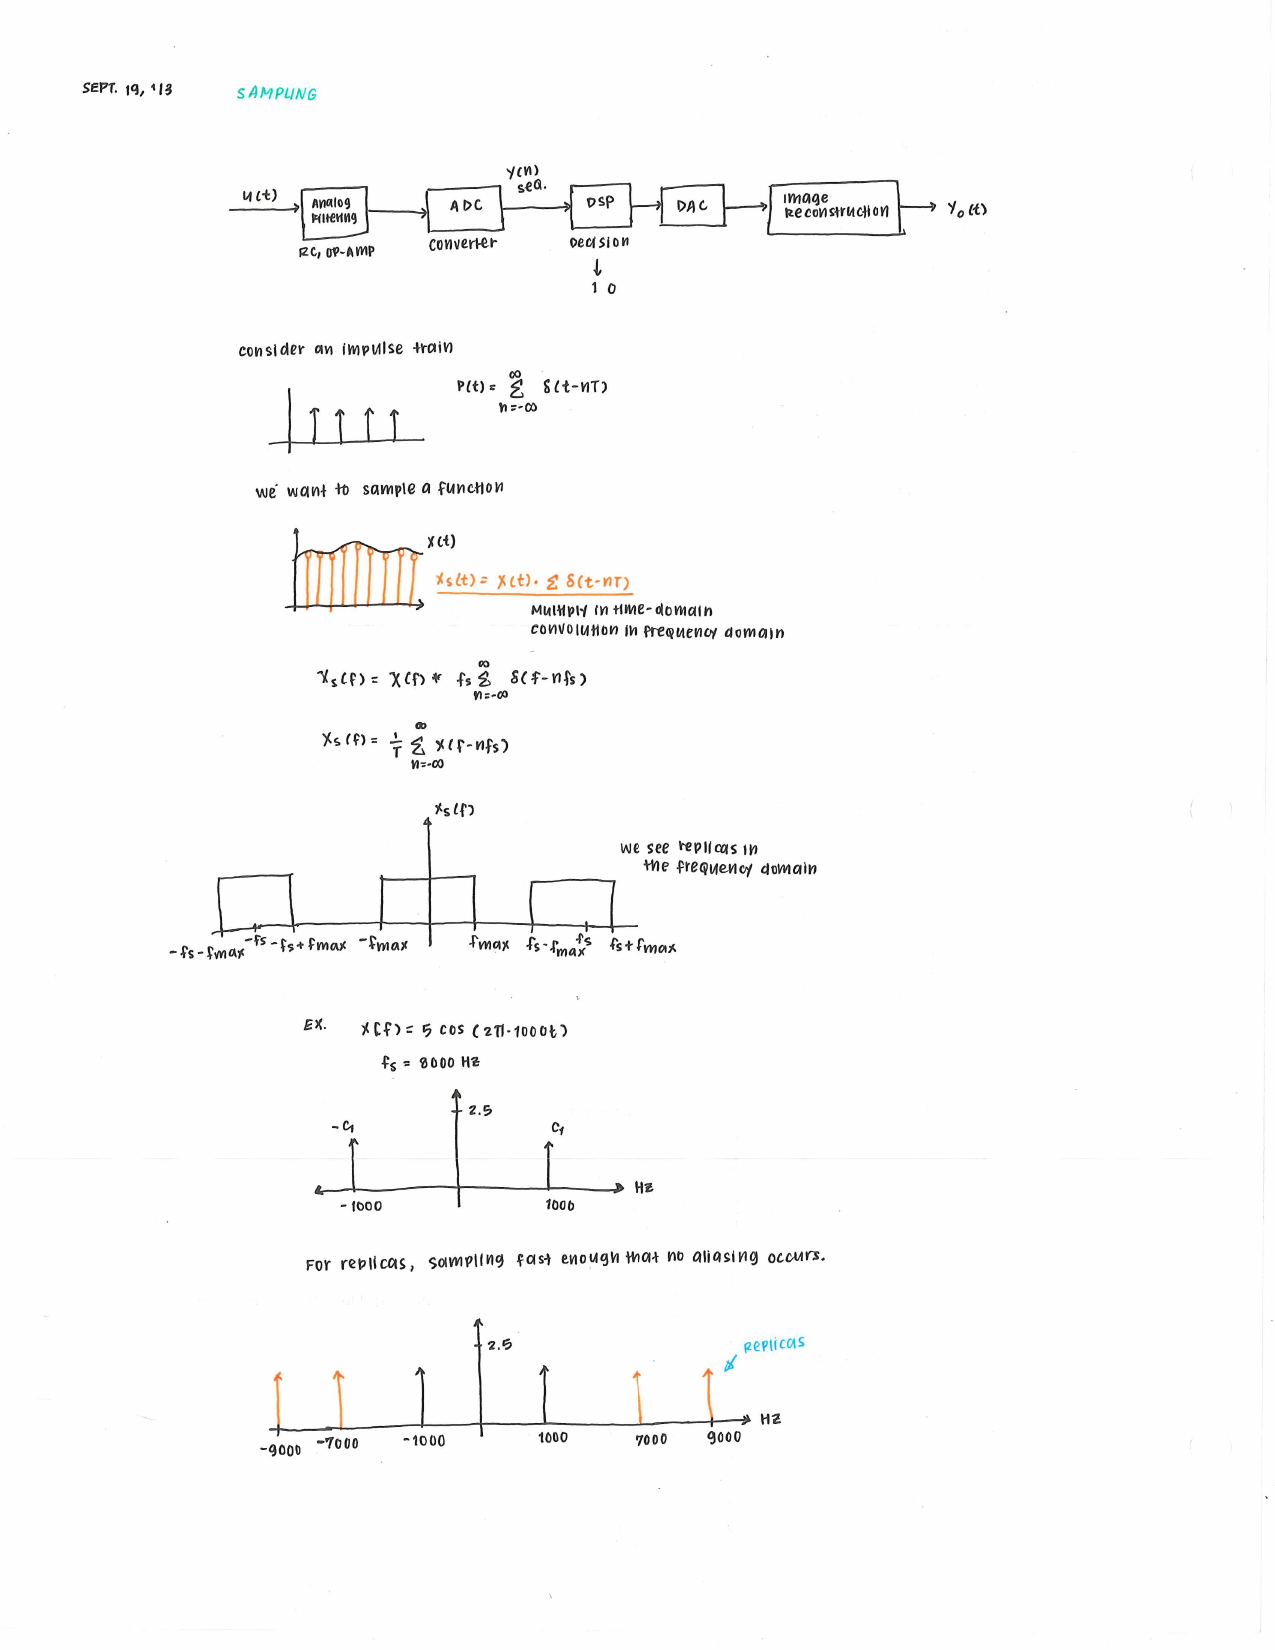 SEPT. 19, '13 SAMPLING
y(n)
seq.
u(t) Analog Filtering ADC DSP DAC Image Reconstruction Yo(t)
RC, OP-AMP Converter Decision
↓
1 0
consider an impulse train
P(t) = ∞ Σ n=-∞ δ(t-nT)
we want to sample a function
x(t)
xs(t) = x(t) · Σ δ(t-nT)
Multiply in time-domain
convolution in frequency domain
Xs(f) = X(f) * fs ∞ Σ n=-∞ δ(f-nfs)
Xs(f) = 1/T ∞ Σ n=-∞ x(f-nfs)
xs(f)
we see replicas in
the frequency domain
-fs-fmax -fs -fs+fmax -fmax fmax fs-fmax fs fs+fmax
EX. x(f) = 5 cos (2π·1000t)
fs = 8000 Hz
2.5
-C1 C1
Hz
-1000 1000
For replicas, sampling fast enough that no aliasing occurs.
2.5 Replicas
Hz
-9000 -7000 -1000 1000 7000 9000